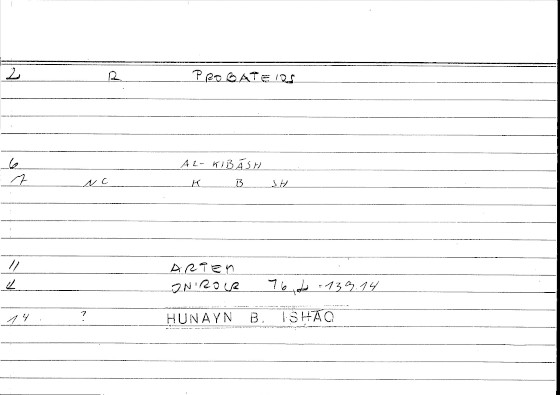 2 R PROBATEIOS
6 AL-KIBĀSH
7 NC K B SH
11 ARTEM
ONIROCR 76,2-139,14
14. ? HUNAYN B. ISHĀQ